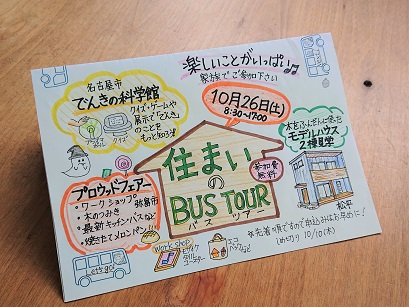 楽しいことがいっぱい
家族でご参加下さい
名古屋市
でんきの科学館
クイズ・ゲームや
展示で「でんき」
のことを
もっと知ろう!
クイズ
10月26日(土)
8:30~17:00
木をふんだんに使った
モデルハウス
2棟見学
松平
住まい
の
BUS TOUR
バスツアー
参加費
無料
プロウッドフェアー
・ワークショップ 弥富市
・木のつみき
・最新キッチンバスなど
・焼きたてメロンパン!!
Let's go!
work shop
モザイク
タイル
コースター
エコ
バッグ
など
※先着順ですので申込みはお早めに!
しめ切り 10/10(木)